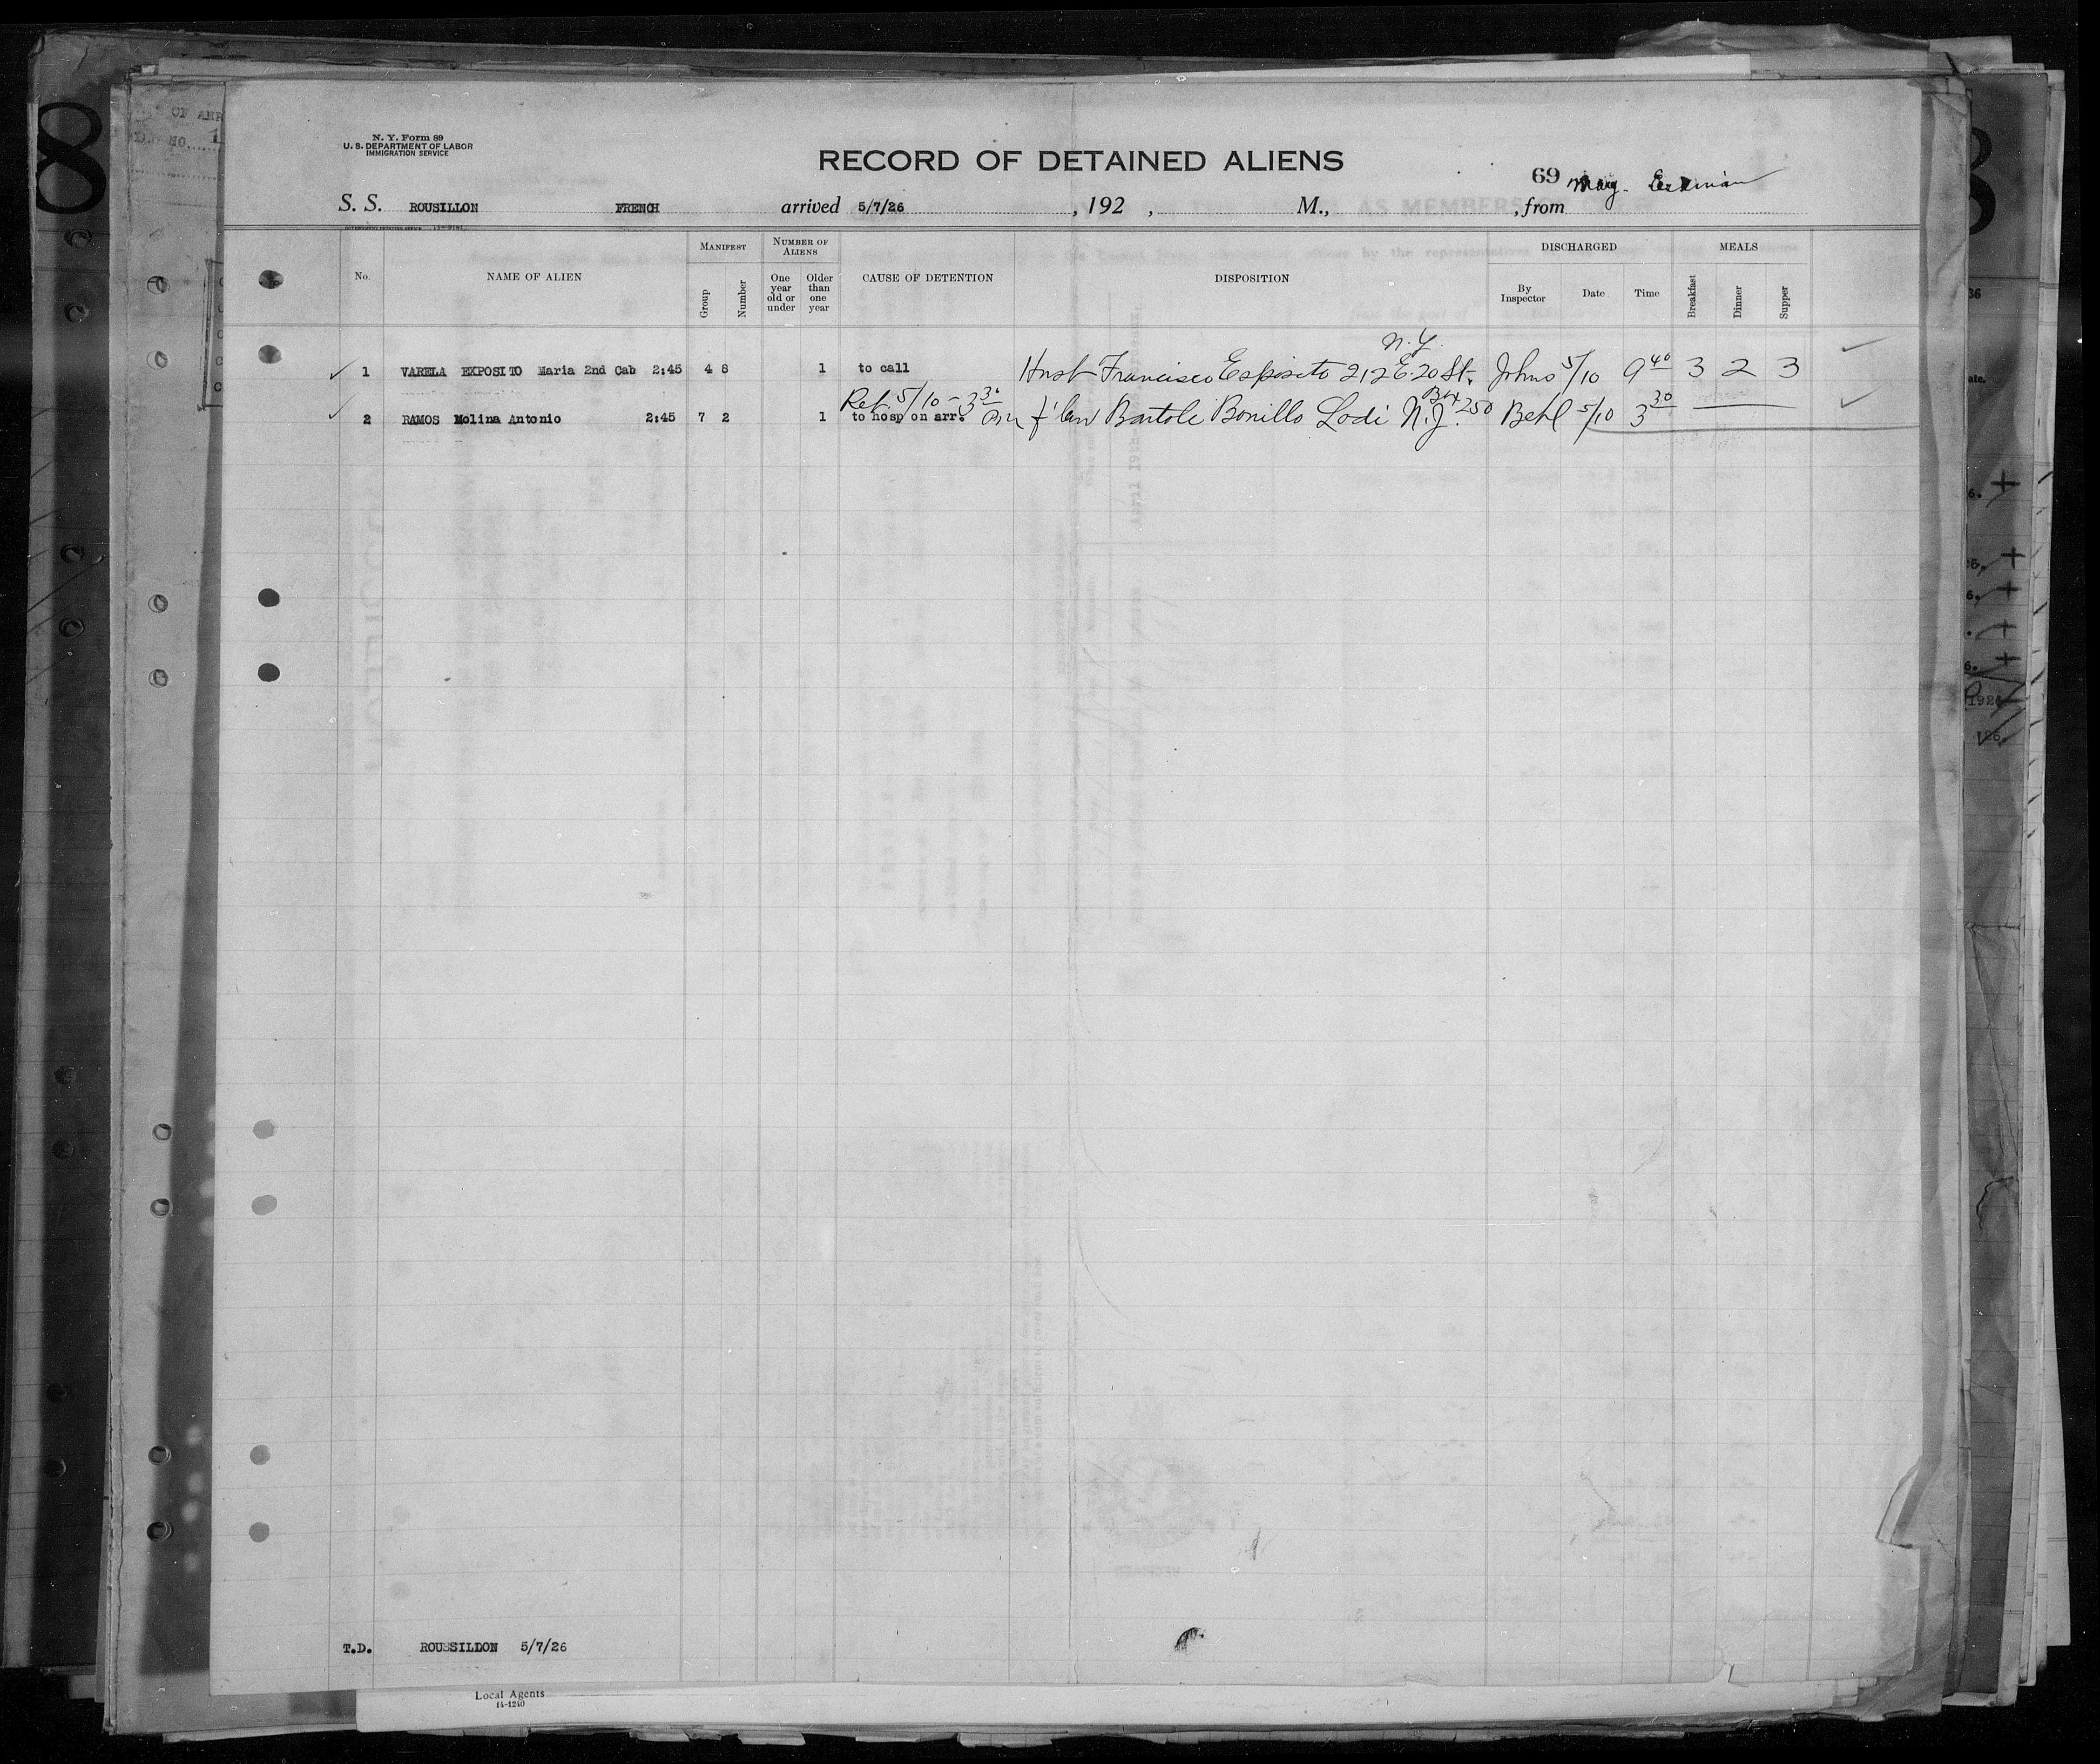 8
OF ARR
NO. 1
N. Y. Form 89
U. S. DEPARTMENT OF LABOR
IMMIGRATION SERVICE
RECORD OF DETAINED ALIENS
69
S. S. ROUSILLON FRENCH arrived 5/7/26, 192 , M., , from
No. NAME OF ALIEN MANIFEST Group Number NUMBER OF ALIENS One year old or under Older than one year CAUSE OF DETENTION DISPOSITION DISCHARGED By Inspector Date Time MEALS Breakfast Dinner Supper
N.Y.
1 VARELA EXPOSITO Maria 2nd Cab 2:45 4 8 1 to call Husb Francisco Esposito 212 E. 20 St. Johns 5/10 9 40 3 2 3
Ret. 5/10 - 3 30 Box 250
2 RAMOS Molina Antonio 2:45 7 2 1 to hosp on arr. f'law Bartole Bonillo Lodi N.J. Behl 5/10 3 30
T.D. ROUSSILLON 5/7/26
Local Agents
14-1240